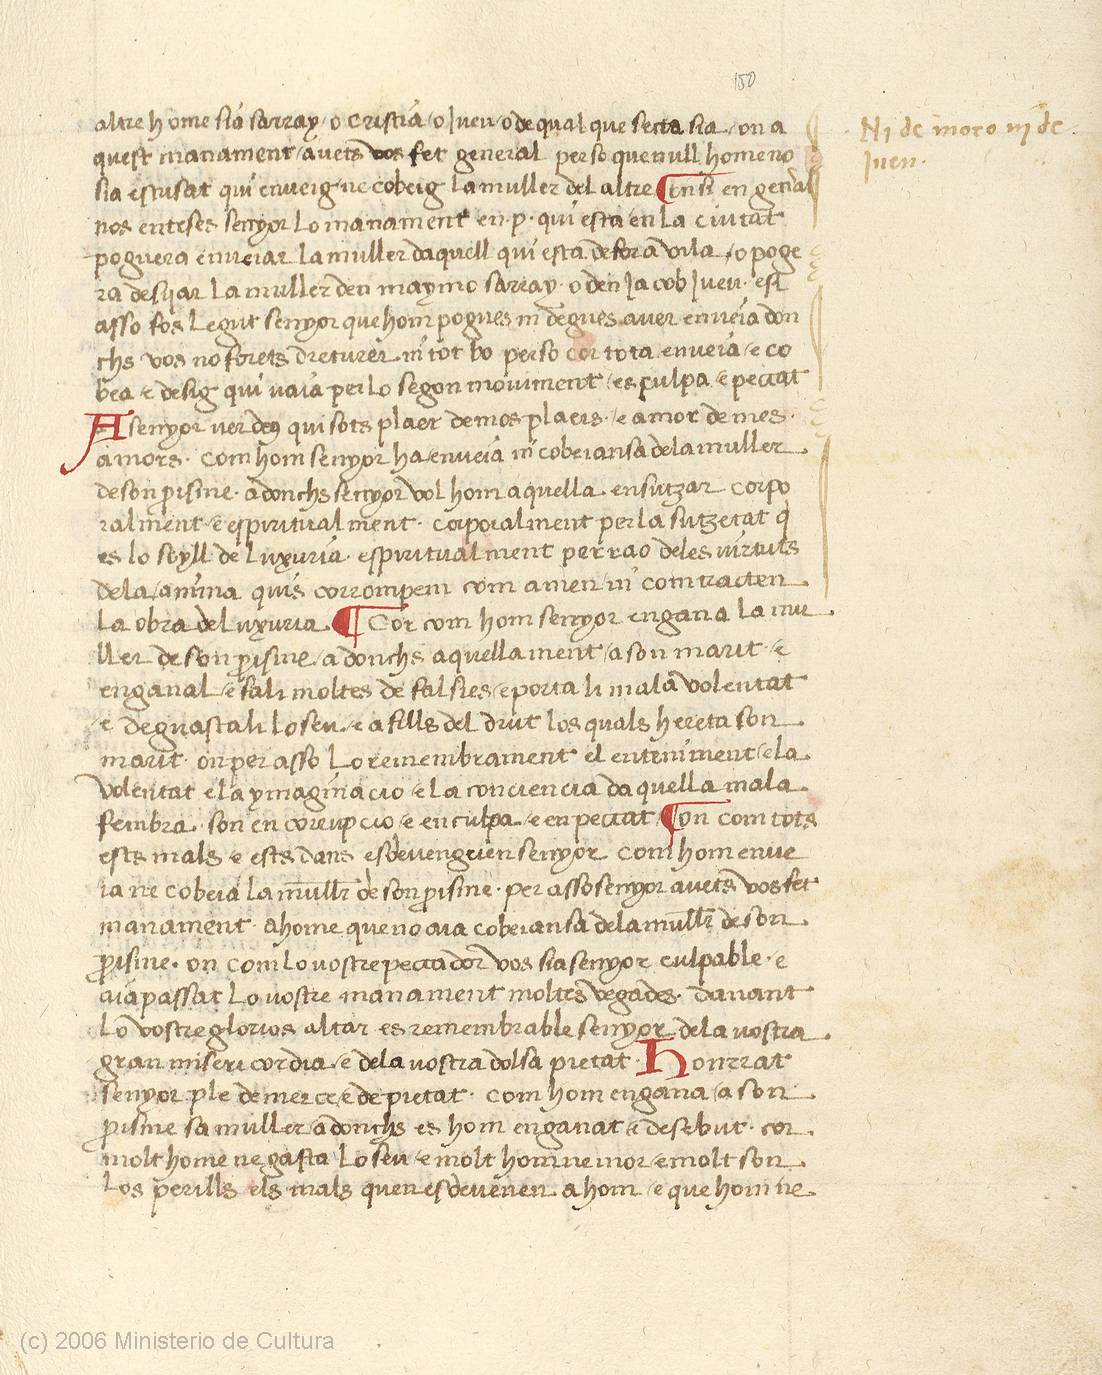 150
altre home sia sarray o cristia o jueu o de qual que secta sia on a
quest manament avets vos fet general per so que null home no
sia escusat qui enveig ne cobeig la muller del altre Cor si en general
nos enteses senyor lo manament en .p. qui esta en la ciutat
poguera enveiar la muller daquell qui esta defora vila o pogue
ra desijar la muller den maymo sarray o den Jacob jueu e si
asso fos legut senyor que hom pogues ni degues aver enveia don
chs vos no forets dreturer ni tot bo per so cor tota enveia e co
bea e desig qui vaia per lo segon moviment es culpa e peccat
A senyor ver deus qui sots plaer de mos plaers e amor de mes
amors Com hom senyor ha enveia ni cobeiansa dela muller
de son proisme adonchs senyor vol hom aquella ensutzar corpo
ralment e espiritualment corporalment per la sutzetat q
es lo soyll de luxuria espiritualment per rao deles virtuts
dela anima quis corrompem com amen ni com tracten
la obra de luxuria Cor com hom senyor engana la mu
ller de son proisme adonchs aquella ment a son marit e
enganal e fali moltes de falsies e porta li mala volentat
e deguastali lo seu e a fills del drut los quals hereta son
marit on per asso lo remembrament el enteniment e la
volentat e la ymaginacio e la conciencia daquella mala
fembra son en corrupcio e en culpa e en peccat On com tots
ests mals e ests dans esdevenguen senyor com hom enve
ia ne cobeia la muller de son proisme per asso senyor avets vos fet
manament a home que no aia cobeiansa dela muller de son
proisme on com lo vostre peccador vos sia senyor culpable e
aia passat lo vostre manament moltes vegades davant
lo vostre glorios altar es remembrable senyor dela vostra
gran misericordia e dela vostra dolsa pietat Honrrat
senyor ple de merce e de pietat com hom engana a son
proisme sa muller adonchs es hom enganat e desebut cor
molt home ne gasta lo seu e molt hom ne mor e molt son
los perills els mals quen esdevenen a hom e que hom ne
Ni de moro ni de
jueu
(c) 2006 Ministerio de Cultura